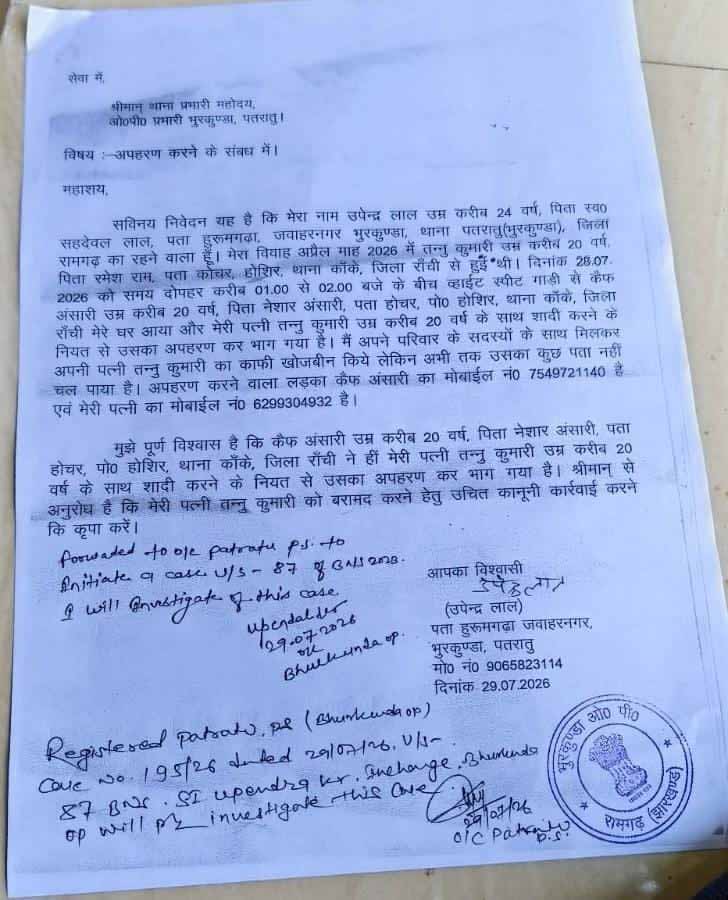 सेवा में,
श्रीमान् थाना प्रभारी महोदय,
ओ०पी० प्रभारी भुरकुण्डा, पतरातु।
विषय :–अपहरण करने के संबध में।
महाशय,
सविनय निवेदन यह है कि मेरा नाम उपेन्द्र लाल उम्र करीब 24 वर्ष, पिता स्व०
सहदेवल लाल, पता हुरूमगढ़ा, जवाहरनगर भुरकुण्डा, थाना पतरातु(भुरकुण्डा), जिला
रामगढ़ का रहने वाला हूँ। मेरा विवाह अप्रैल माह 2026 में तन्नु कुमारी उम्र करीब 20 वर्ष,
पिता रमेश राम, पता कोचर, होशिर, थाना काँके, जिला राँची से हुई थी। दिनांक 28.07.
2026 को समय दोपहर करीब 01.00 से 02.00 बजे के बीच व्हाईट स्पीट गाड़ी से कैफ
अंसारी उम्र करीब 20 वर्ष, पिता नेशार अंसारी, पता होचर, पो० होशिर, थाना काँके, जिला
राँची मेरे घर आया और मेरी पत्नी तन्नु कुमारी उम्र करीब 20 वर्ष के साथ शादी करने के
नियत से उसका अपहरण कर भाग गया है। मैं अपने परिवार के सदस्यों के साथ मिलकर
अपनी पत्नी तन्नु कुमारी का काफी खोजबीन किये लेकिन अभी तक उसका कुछ पता नहीं
चल पाया है। अपहरण करने वाला लड़का कैफ अंसारी का मोबाईल नं० 7549721140 है
एवं मेरी पत्नी का मोबाईल नं० 6299304932 है।
मुझे पूर्ण विश्वास है कि कैफ अंसारी उम्र करीब 20 वर्ष, पिता नेशार अंसारी, पता
होचर, पो० होशिर, थाना काँके, जिला राँची ने हीं मेरी पत्नी तन्नु कुमारी उम्र करीब 20
वर्ष के साथ शादी करने के नियत से उसका अपहरण कर भाग गया है। श्रीमान् से
अनुरोध है कि मेरी पत्नी तन्नु कुमारी को बरामद करने हेतु उचित कानूनी कार्रवाई करने
कि कृपा करें।
forwaded to o/c patratu p.s. to
Initiate a case U/S - 87 of BNS 2023.
I will Investigate of this case.
29.07.2026
o/c
Bhurkunda op.
आपका विश्वासी
(उपेन्द्र लाल)
पता हुरूमगढ़ा जवाहरनगर,
भुरकुण्डा, पतरातु
मो० नं० 9065823114
दिनांक 29.07.2026
Registered patratu, ps (Bhurkunda op)
Case No. 195/26 dated 29/07/26, U/S-
87 BNS. SI upendra kr. Incharge, Bhurkunda
op will plz investigate this case
29/07/26
O/C Patratu
P.S.
भुरकुण्डा ओ० पी०
रामगढ़ (झारखण्ड)